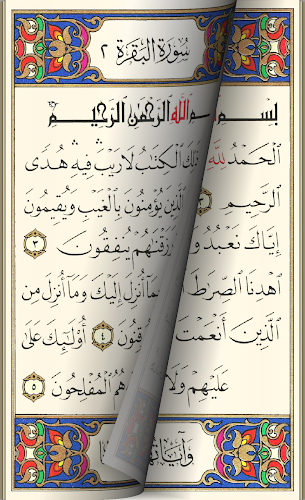 سُورَةُ الْبَقَرَةِ ٢
بِسْمِ اللَّهِ الرَّحْمَٰنِ الرَّحِيمِ
الْحَمْدُ لِلَّهِ لِكَ الْكِتَٰبُ لَا رَيْبَ فِيهِ هُدًى
الرَّحِيمِ ٣ الَّذِينَ يُؤْمِنُونَ بِالْغَيْبِ وَيُقِيمُونَ
إِيَّاكَ نَعْبُدُ وَ رَزَقْنَٰهُمْ يُنفِقُونَ ٣
اهْدِنَا الصِّرَٰطَ بِمَا أُنزِلَ إِلَيْكَ وَمَا أُنزِلَ مِن
الَّذِينَ أَنْعَمْتَ قِنُونَ ٤ أُوْلَٰئِكَ عَلَىٰ
عَلَيْهِمْ وَلَا هُمُ الْمُفْلِحُونَ ٥
وَآيَاتُهَا